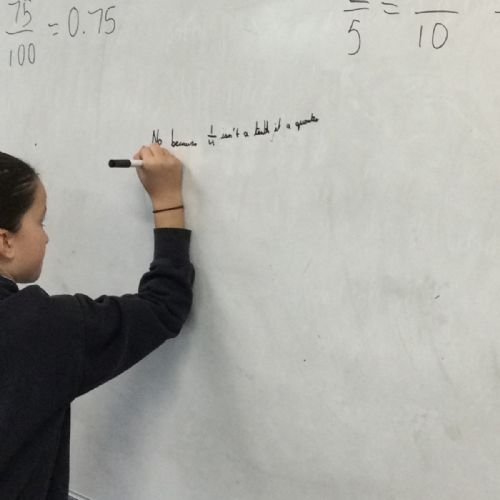 75/100 = 0.75
/5 = /10
No because 1/4 isn't a tenth it a quarter